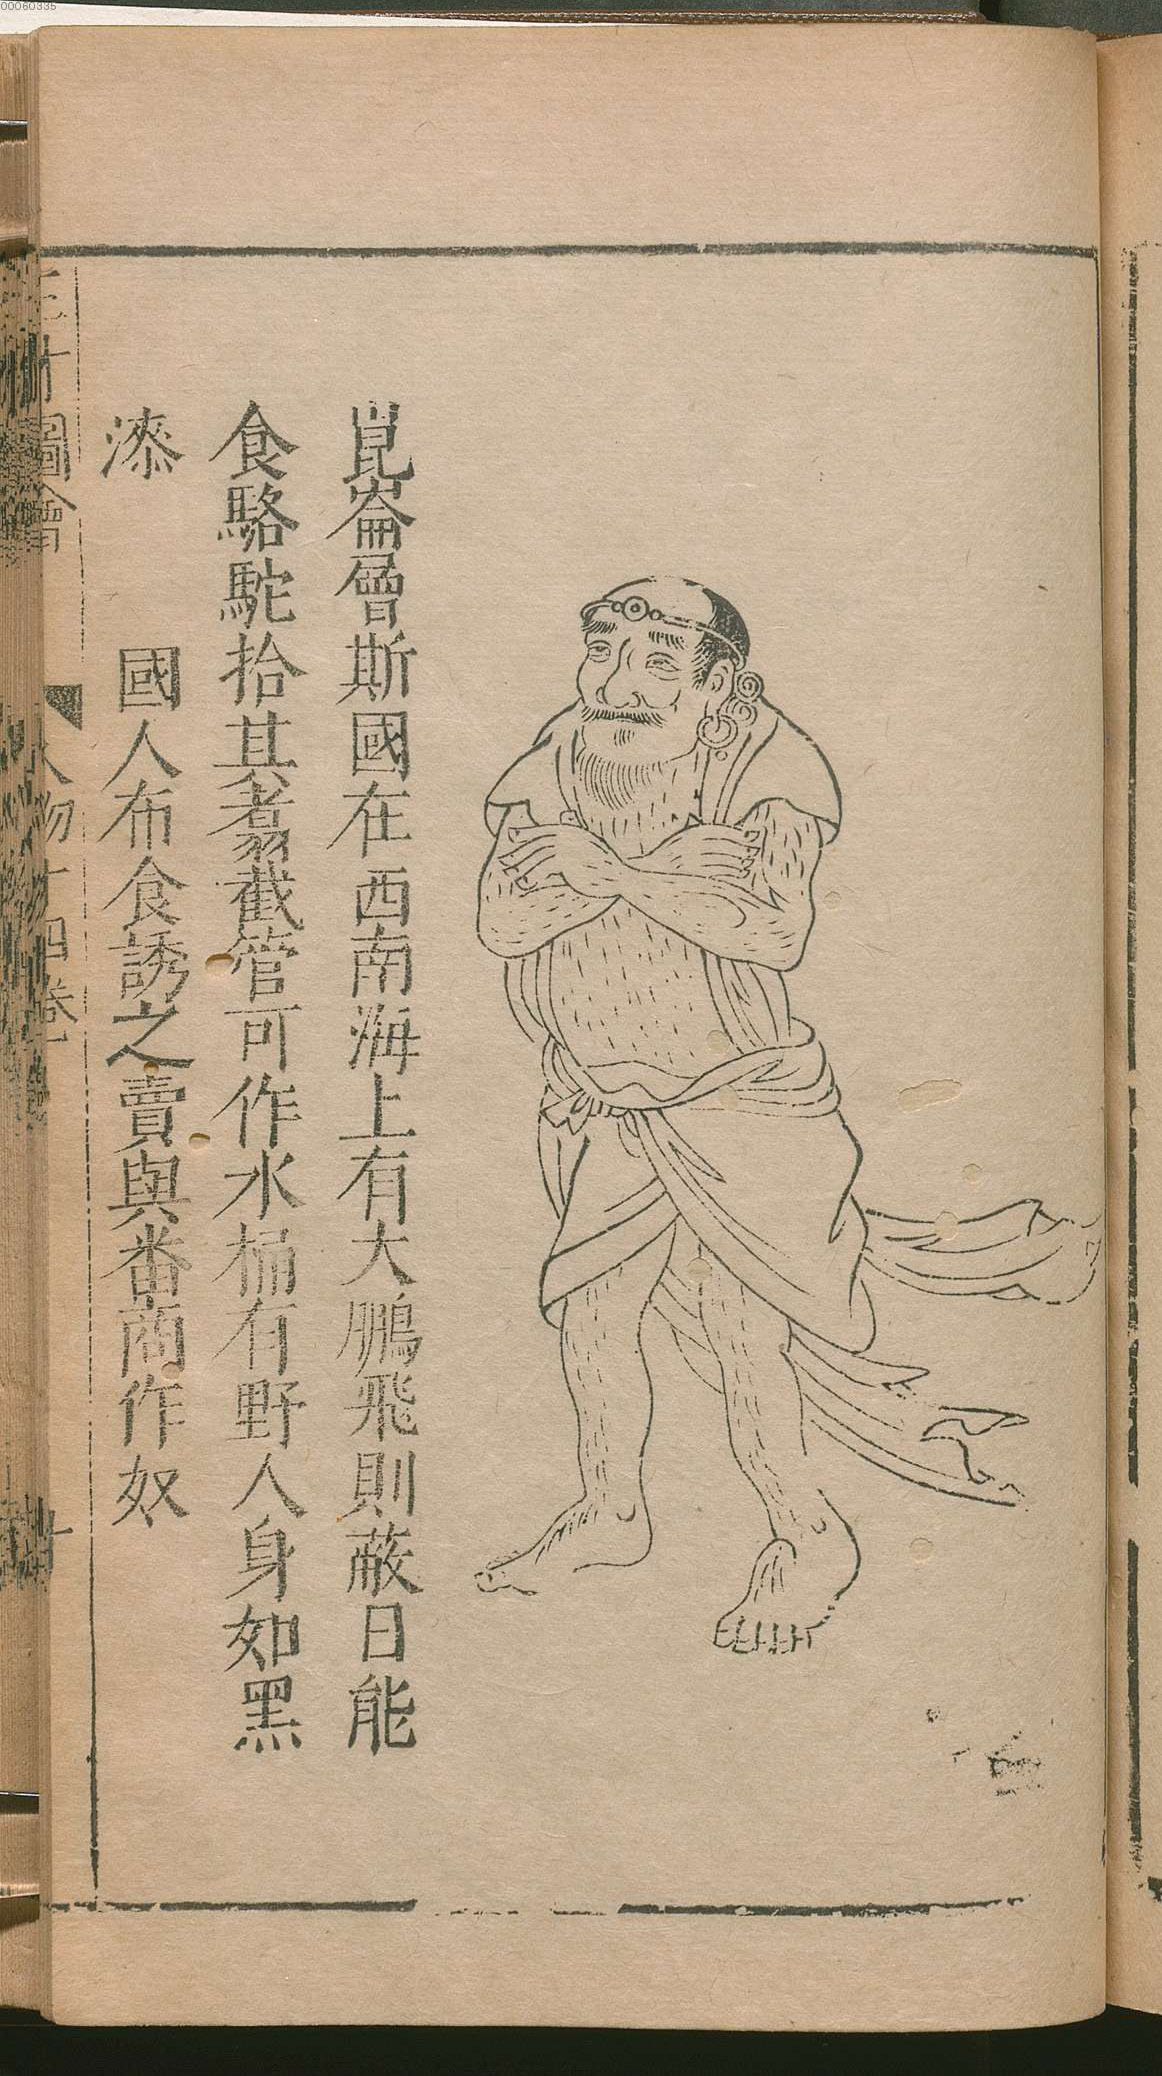 崑崙層斯國在西南海上有大鵬飛則蔽日能
食駱駝拾其翥截管可作水桶有野人身如黑
漆　　國人布食誘之賣與番商作奴
三才圖會
人物十四卷
十
00060335